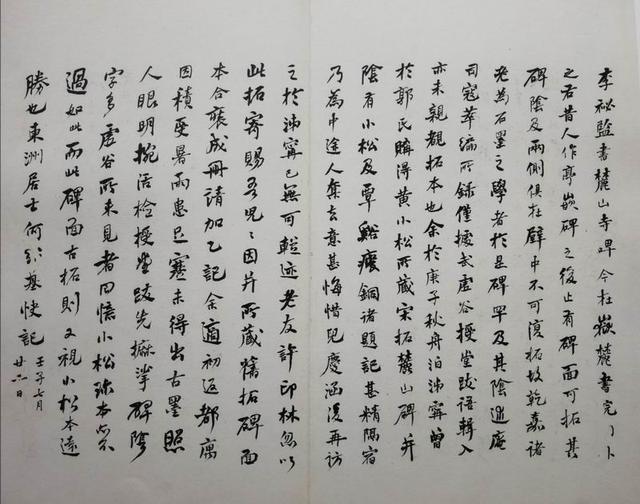 李祕監書麓山寺碑今在嶽麓書院卜
之右昔人作亭嵌碑之復止有碑面可拓其
碑陰及兩側俱在壁中不可復拓故乾嘉諸
老為石墨之學者於是碑罕及其陰述庵
司寇萃編所錄僅據武虛谷授堂跋語輯入
亦未親覩拓本也余於庚子秋舟泊沛寧曾
於郭氏購得黃小松所藏宋拓麓山碑并
陰有小松及覃谿癭銅諸題記甚精隔宿
乃為中途人奪去意甚悔惜兒慶涵復再訪
之於沛寧已無可蹤迹老友許印林忽以
此拓寄賜吾兒兒因并所藏舊拓碑面
本合裝成冊請加乙記余適初返都寓
因積受暑雨患足蹇未得出古墨照
人眼明捥活檢授堂跋先摩挲碑陰
字多虛谷所未見者回憶小松珍本尚不
過如此而此碑面古拓則又視小松本遠
勝也東洲居士何紹基快記 壬子七月
廿六日